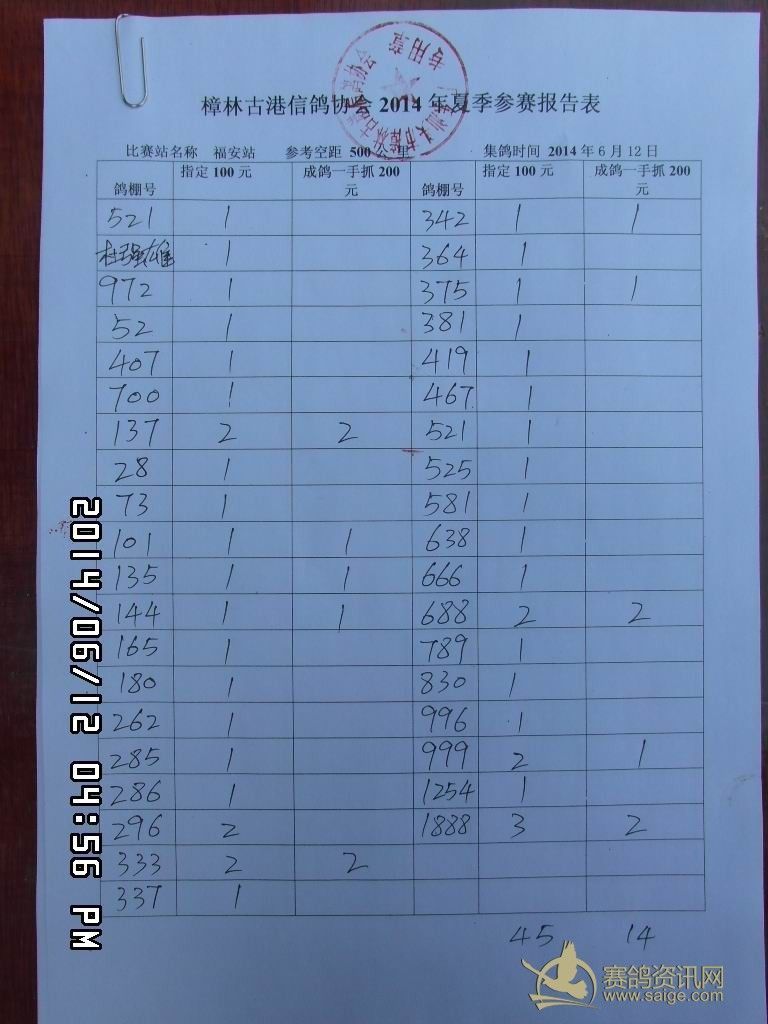 樟林古港信鸽协会 2014 年夏季参赛报告表
比赛站名称 福安站 参考空距 500 公里 集鸽时间 2014 年 6 月 12 日
鸽棚号 指定 100 元 成鸽一手抓 200 元 鸽棚号 指定 100 元 成鸽一手抓 200 元
521 1 342 1 1
杜强雄 1 364 1
972 1 375 1 1
52 1 381 1
407 1 419 1
700 1 467 1
137 2 2 521 1
28 1 525 1
73 1 581 1
101 1 1 638 1
135 1 1 666 1
144 1 1 688 2 2
165 1 789 1
180 1 830 1
262 1 996 1
285 1 999 2 1
286 1 1254 1
296 2 1888 3 2
333 2 2
337 1
45 14
2014/06/12 04:56 PM
专用章
赛鸽资讯网
www.saige.com